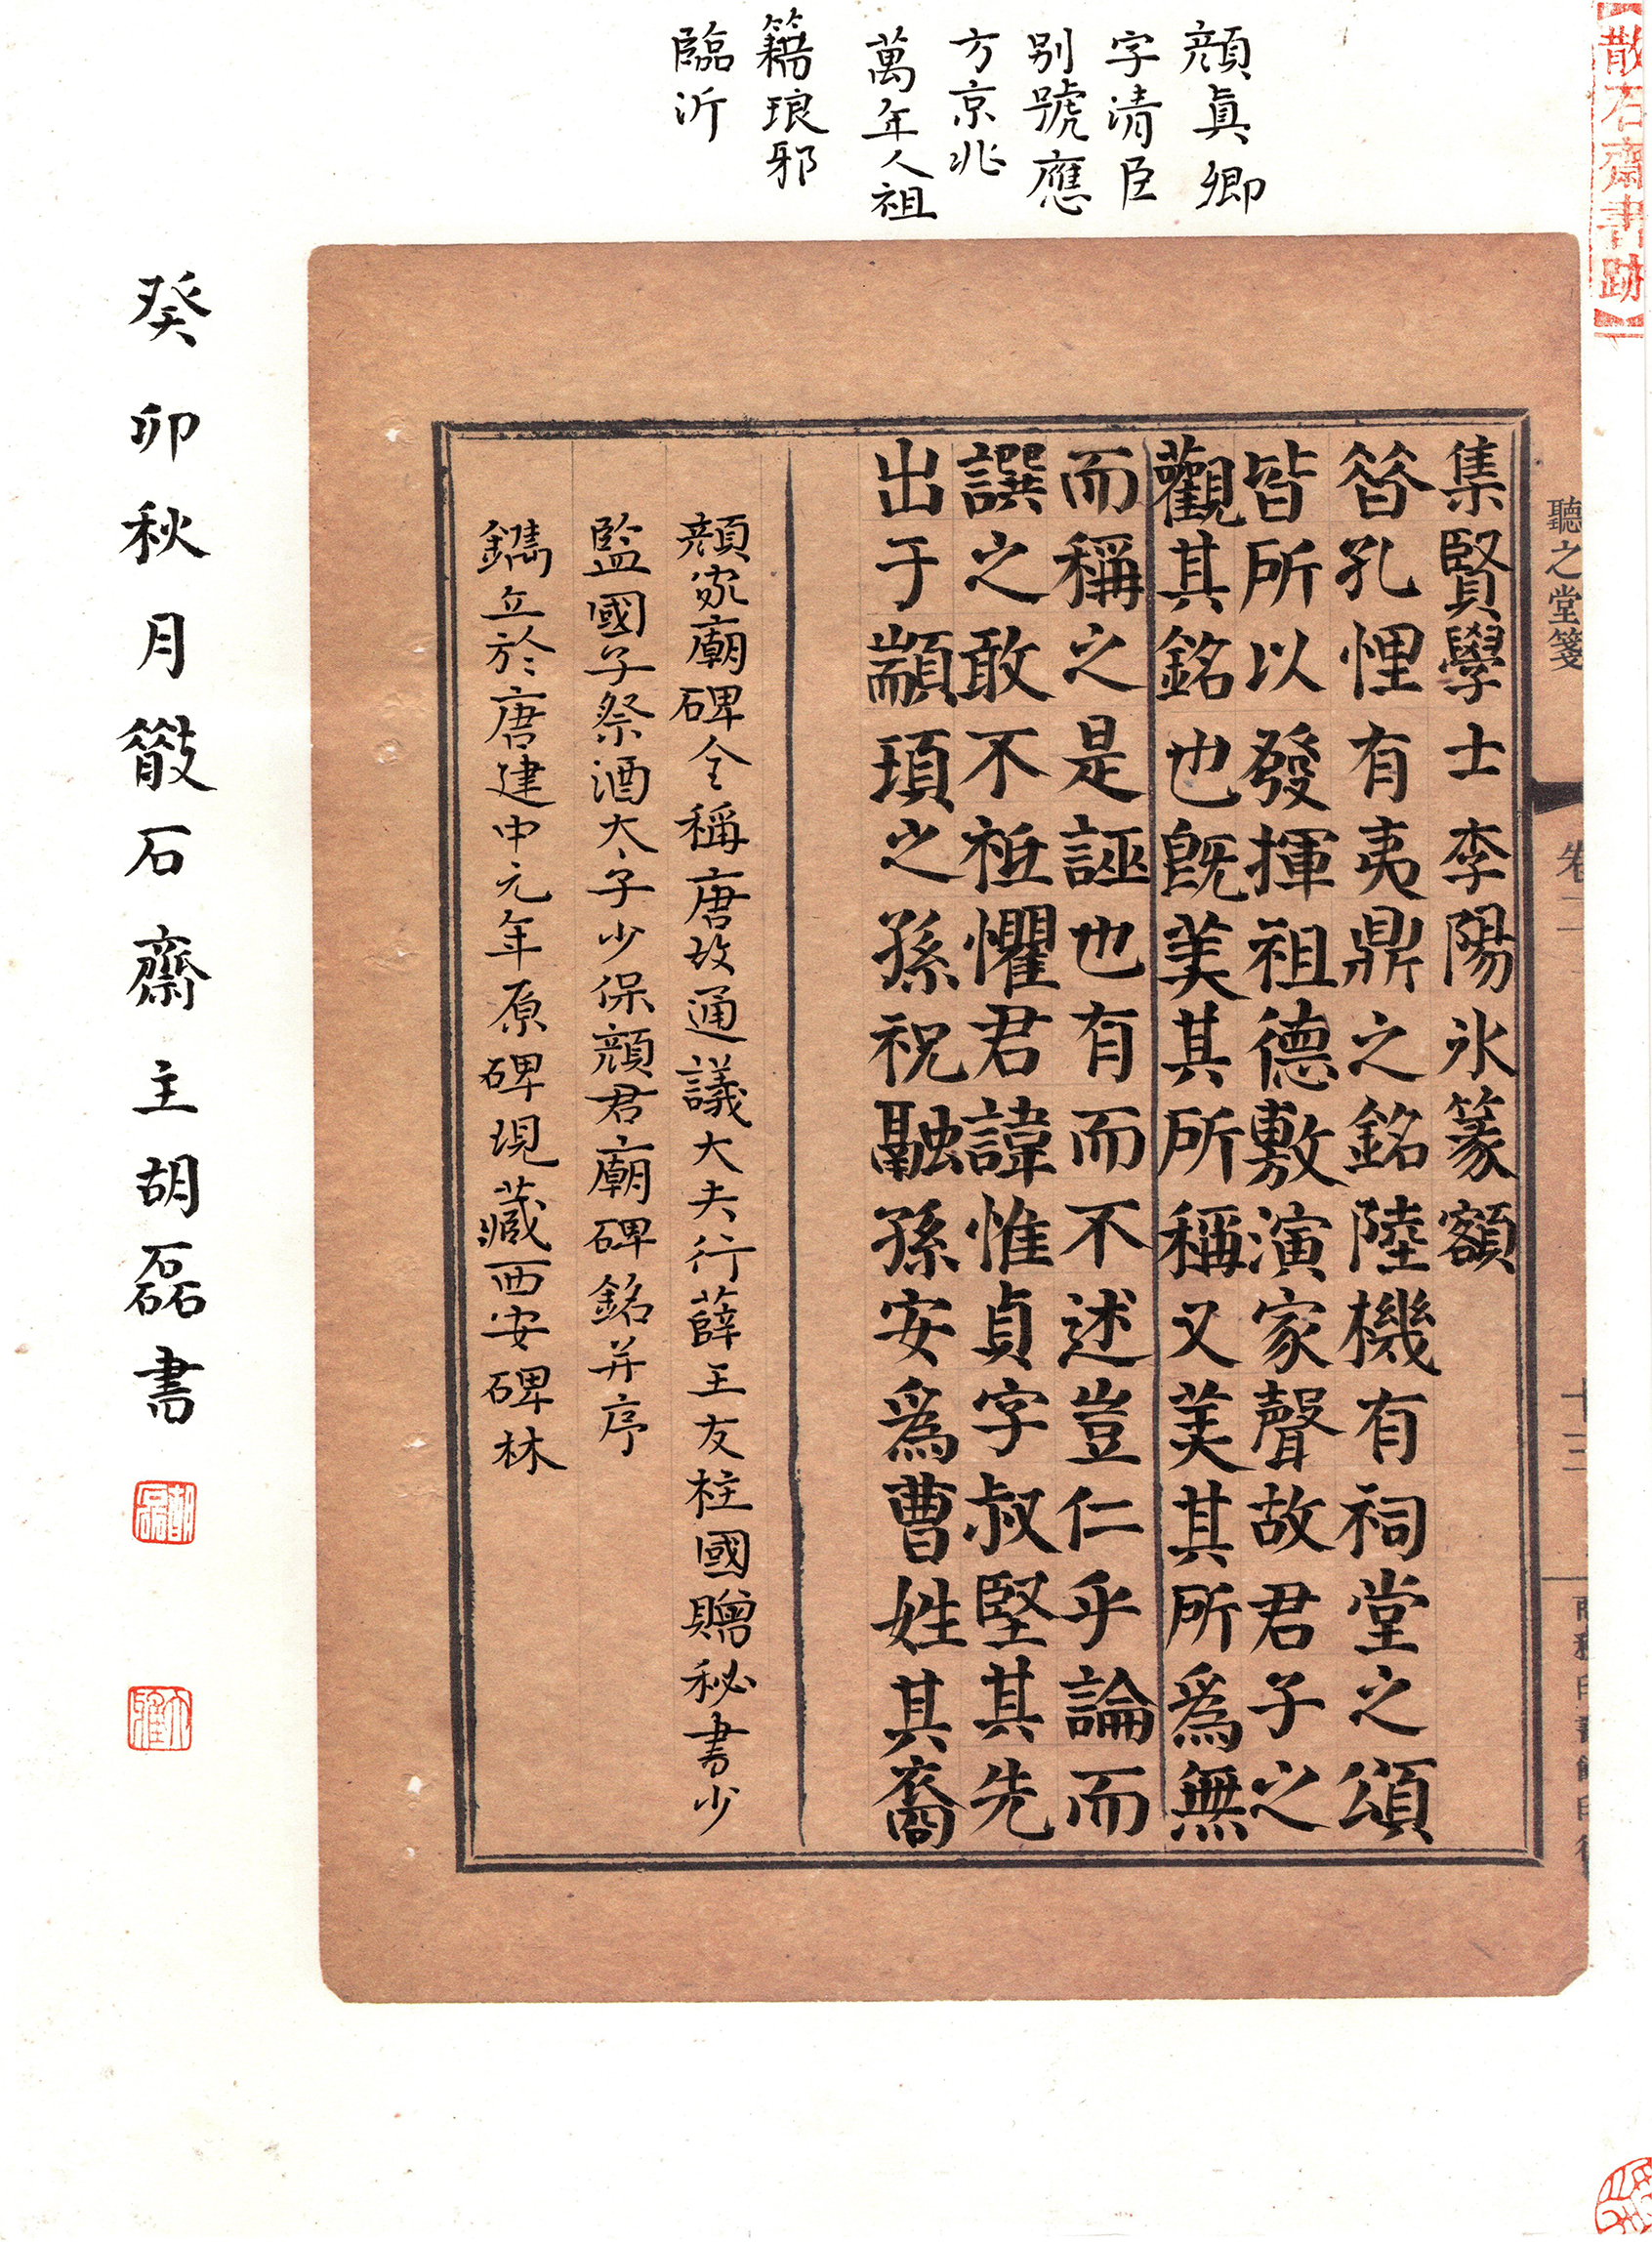 散石齋書跡
顔真卿
字清臣
别號應
方京兆
萬年人祖
籍琅邪
臨沂
聽之堂箋
卷二
十三
集賢學士李陽氷篆額
昝孔悝有夷鼎之銘陸機有祠堂之頌
皆所以發揮祖德敷演家聲故君子之
觀其銘也既美其所稱又美其所為無
而稱之是誣也有而不述豈仁乎論而
譔之敢不祗懼君諱惟貞字叔堅其先
出于顓頊之孫祝融孫安為曹姓其裔
顔家廟碑全稱唐故通議大夫行薛王友柱國贈秘書少
監國子祭酒太子少保顔君廟碑銘并序
鐫立於唐建中元年原碑現藏西安碑林
癸卯秋月散石齋主胡磊書